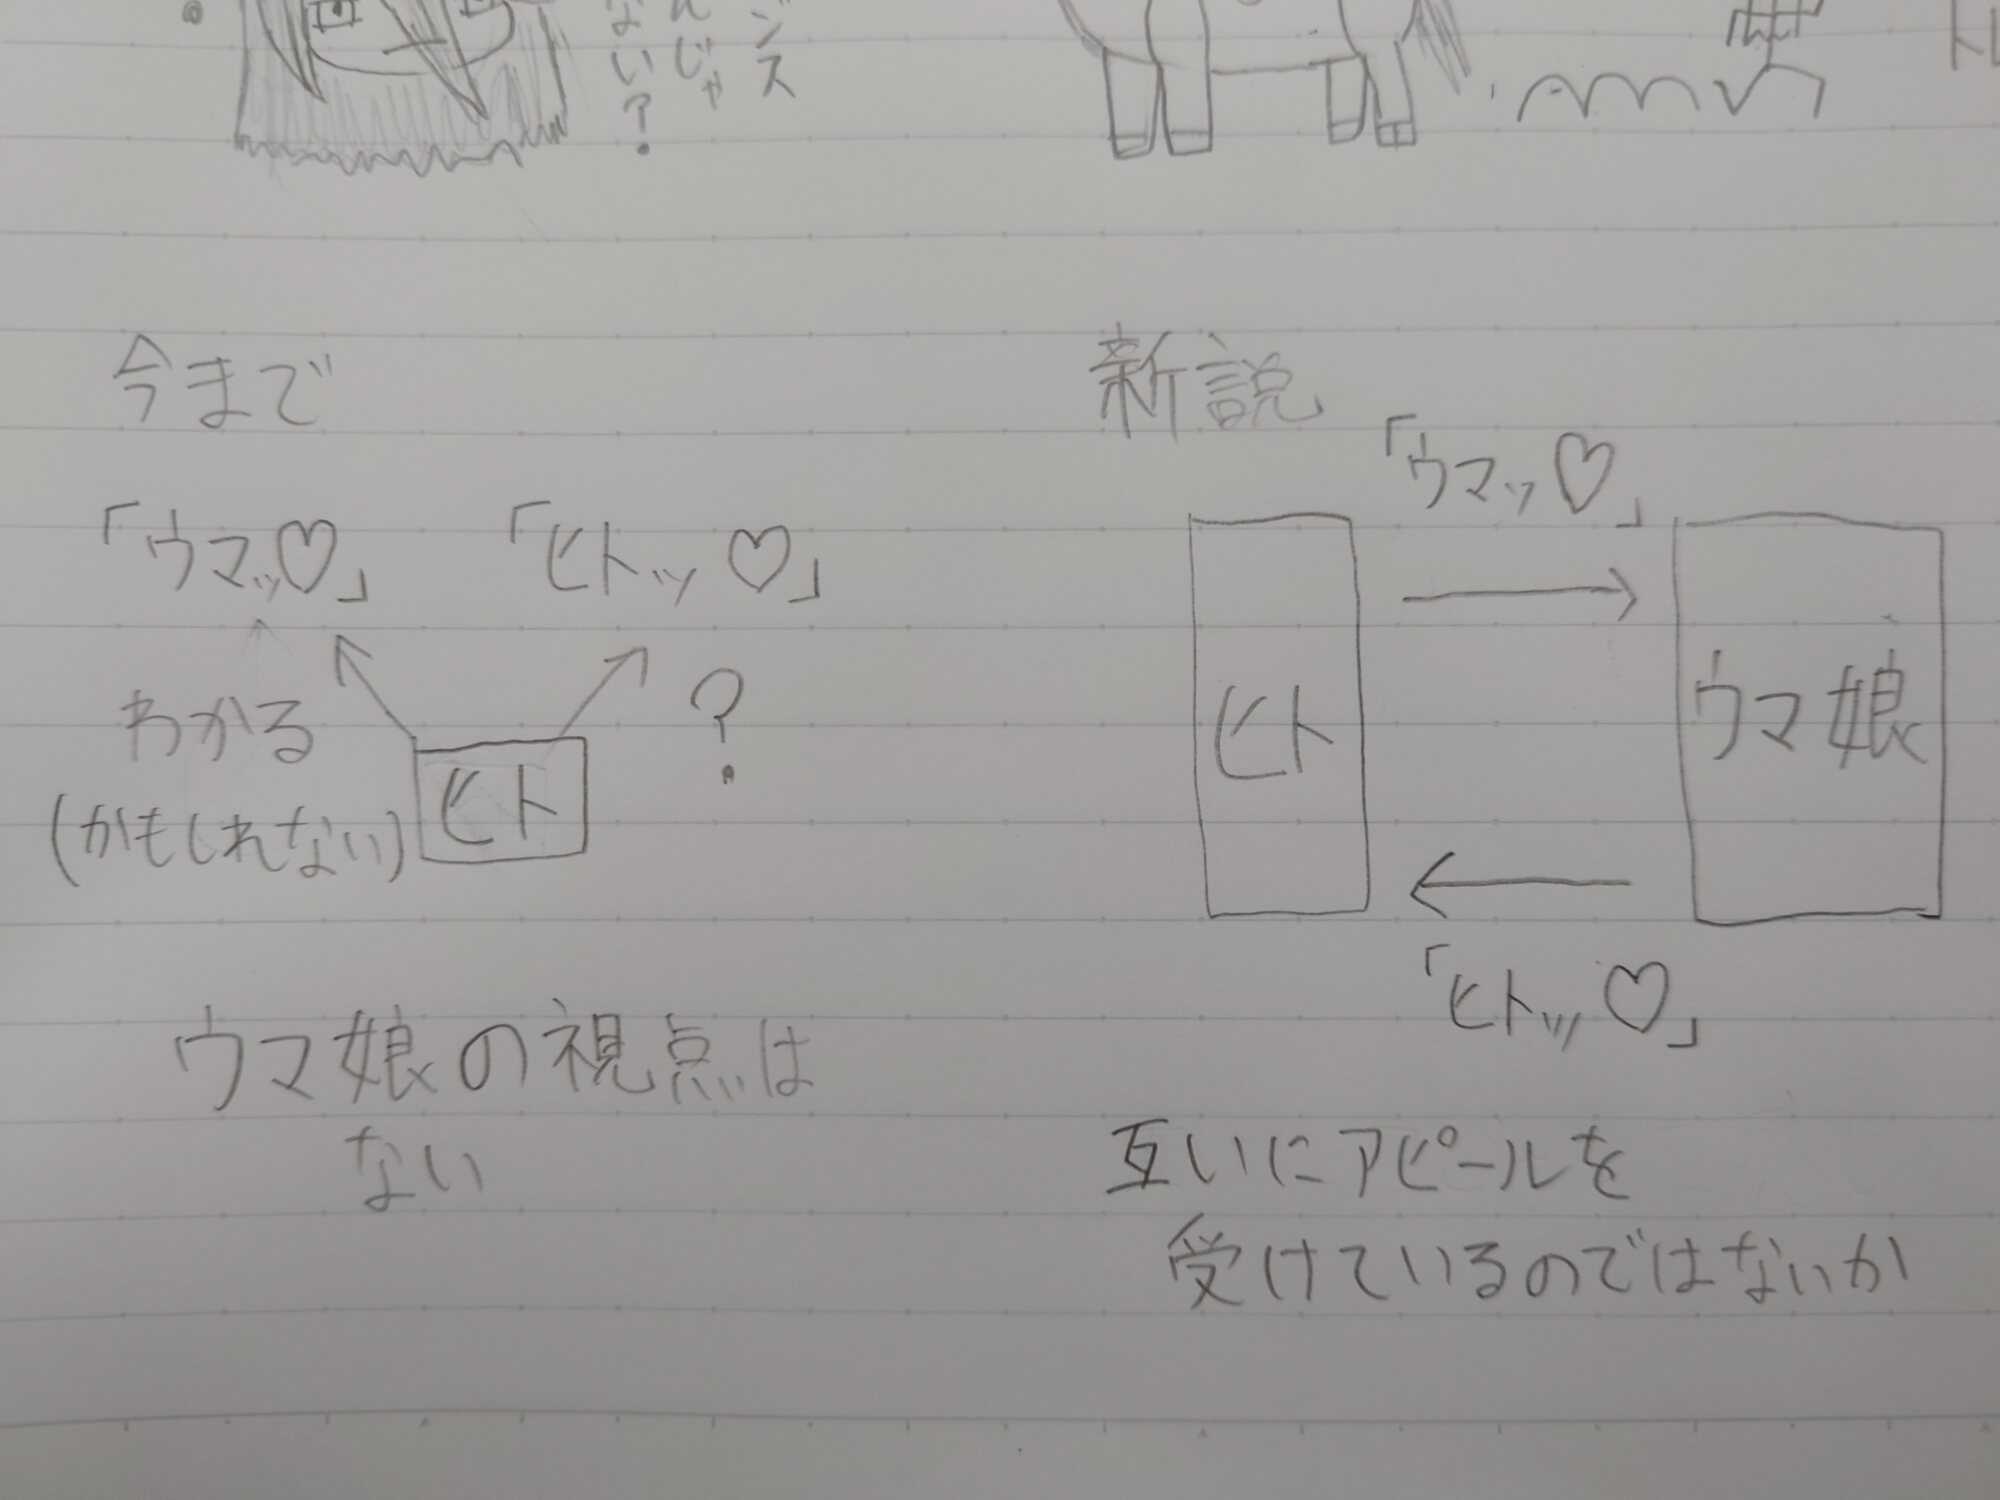 ンス
んじゃ
ない？
今まで
「ウマッ♡」
「ヒトッ♡」
わかる
(かもしれない)
ヒト
？
ウマ娘の視点は
ない
新説
「ウマッ♡」
ヒト
ウマ娘
「ヒトッ♡」
互いにアピールを
受けているのではないか